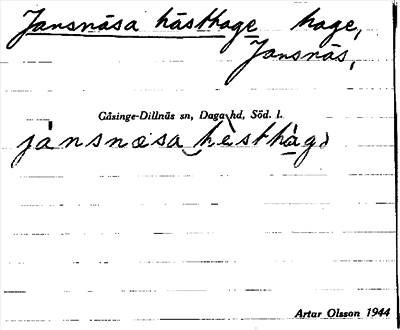 Jansnäsa hästhage hage,
Jansnäs,
Gåsinge-Dillnäs sn, Daga hd, Söd. l.
jànsnæsa hèsthàgə
Artar Olsson 1944